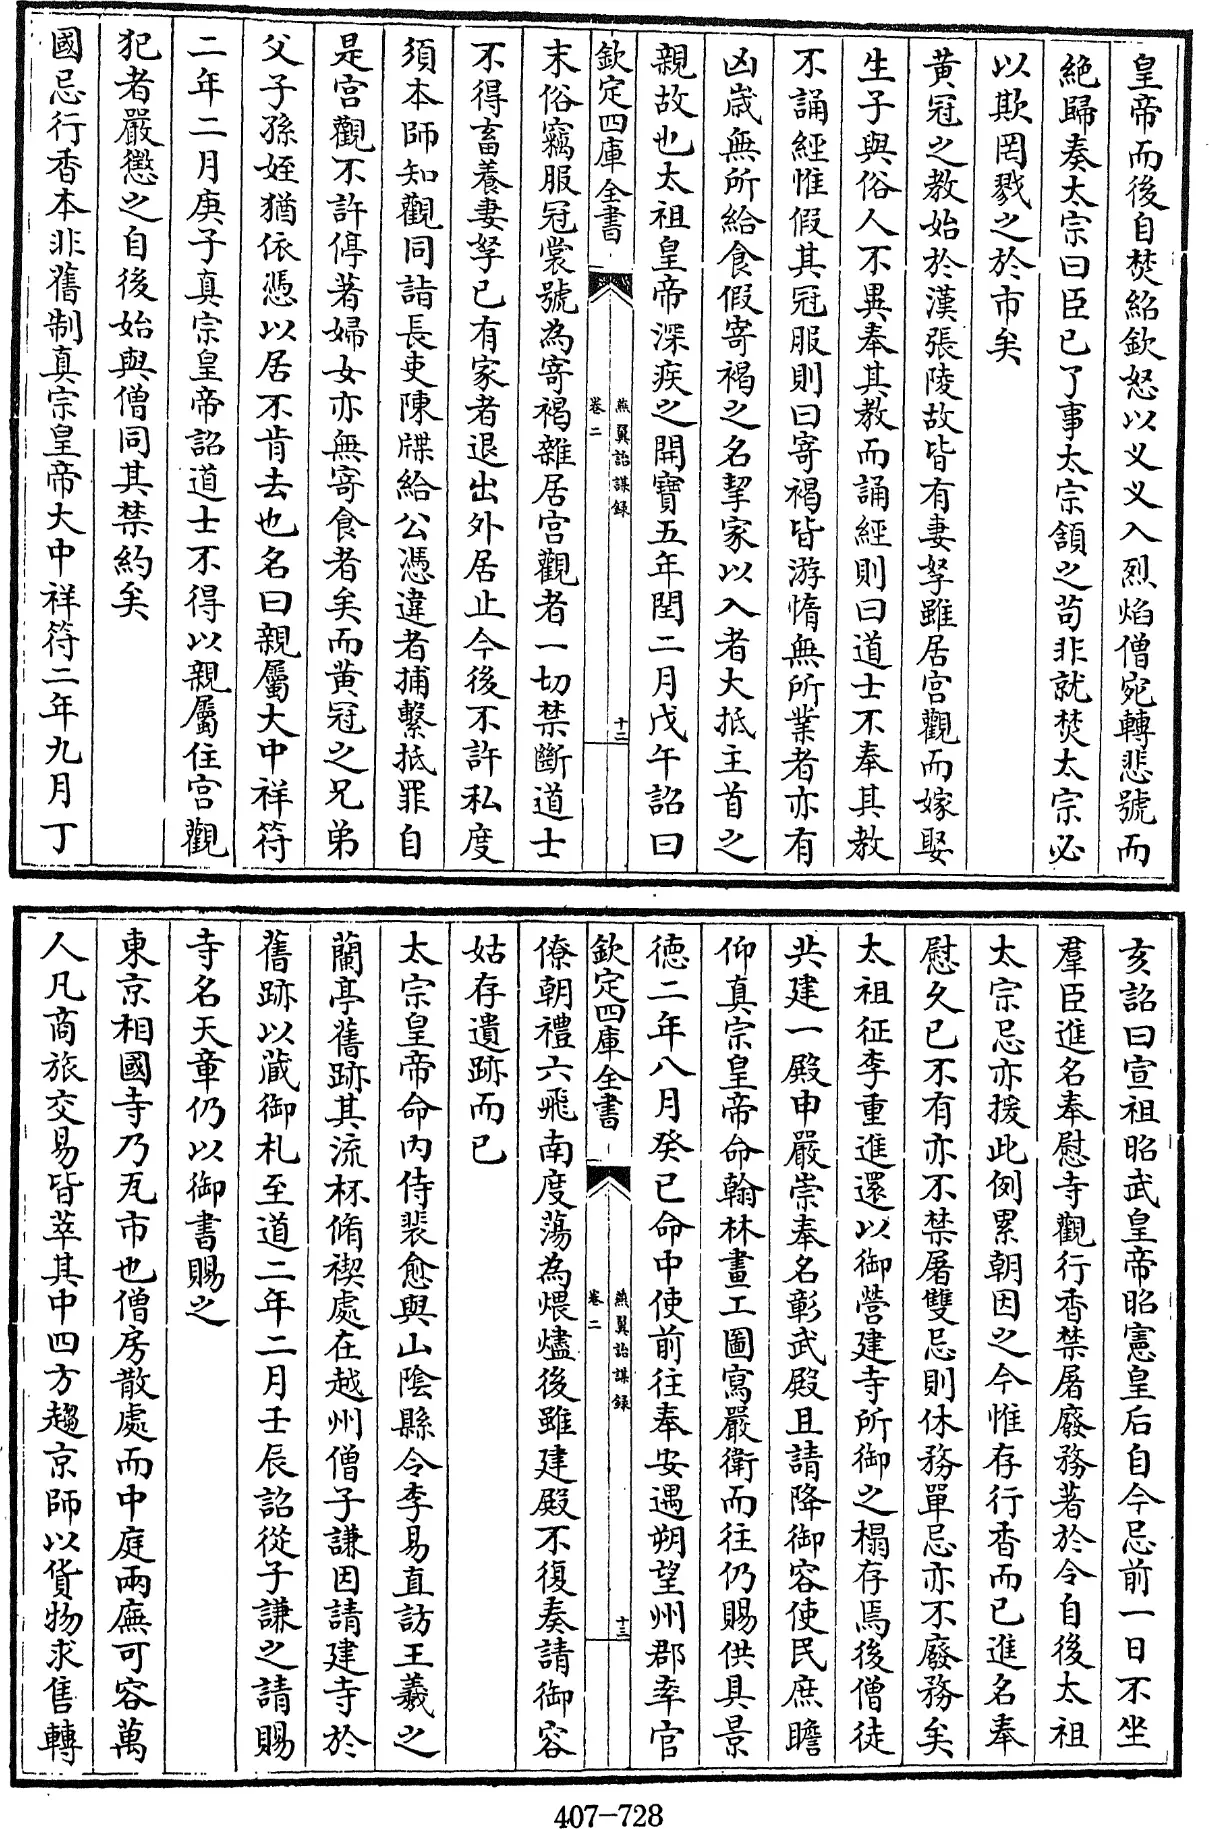 皇帝而後自焚紹欽怒以义义入烈焰僧宛轉悲號而
絶歸奏太宗曰臣已了事太宗頷之苟非就焚太宗必
以欺罔戮之於市矣
黄冠之教始於漢張陵故皆有妻孥雖居宫觀而嫁娶
生子與俗人不異奉其教而誦經則曰道士不奉其教
不誦經惟假其冠服則曰寄褐皆游惰無所業者亦有
凶歲無所給食假寄褐之名挈家以入者大抵主首之
親故也太祖皇帝深疾之開寶五年閏二月戊午詔曰
欽定四庫全書
燕翼詒謀録
卷二
十二
末俗竊服冠裳號為寄褐雜居宫觀者一切禁斷道士
不得畜養妻孥已有家者退出外居止今後不許私度
須本師知觀同詣長吏陳牒給公憑違者捕繫抵罪自
是宫觀不許停著婦女亦無寄食者矣而黄冠之兄弟
父子孫姪猶依憑以居不肯去也名曰親屬大中祥符
二年二月庚子真宗皇帝詔道士不得以親屬住宫觀
犯者嚴懲之自後始與僧同其禁約矣
國忌行香本非舊制真宗皇帝大中祥符二年九月丁
亥詔曰宣祖昭武皇帝昭憲皇后自今忌前一日不坐
羣臣進名奉慰寺觀行香禁屠廢務著於令自後太祖
太宗忌亦援此例累朝因之今惟存行香而已進名奉
慰久已不有亦不禁屠雙忌則休務單忌亦不廢務矣
太祖征李重進還以御營建寺所御之榻存焉後僧徒
共建一殿申嚴崇奉名彰武殿且請降御容使民庶瞻
仰真宗皇帝命翰林畫工圖寫嚴衛而往仍賜供具景
徳二年八月癸巳命中使前往奉安遇朔望州郡率官
欽定四庫全書
燕翼詒謀録
卷二
十三
僚朝禮六飛南度蕩為煨燼後雖建殿不復奏請御容
姑存遺跡而已
太宗皇帝命内侍裴愈與山陰縣令李易直訪王羲之
蘭亭舊跡其流杯脩禊處在越州僧子謙因請建寺於
舊跡以藏御札至道二年二月壬辰詔從子謙之請賜
寺名天章仍以御書賜之
東京相國寺乃瓦市也僧房散處而中庭兩廡可容萬
人凡商旅交易皆萃其中四方趨京師以貨物求售轉
407-728